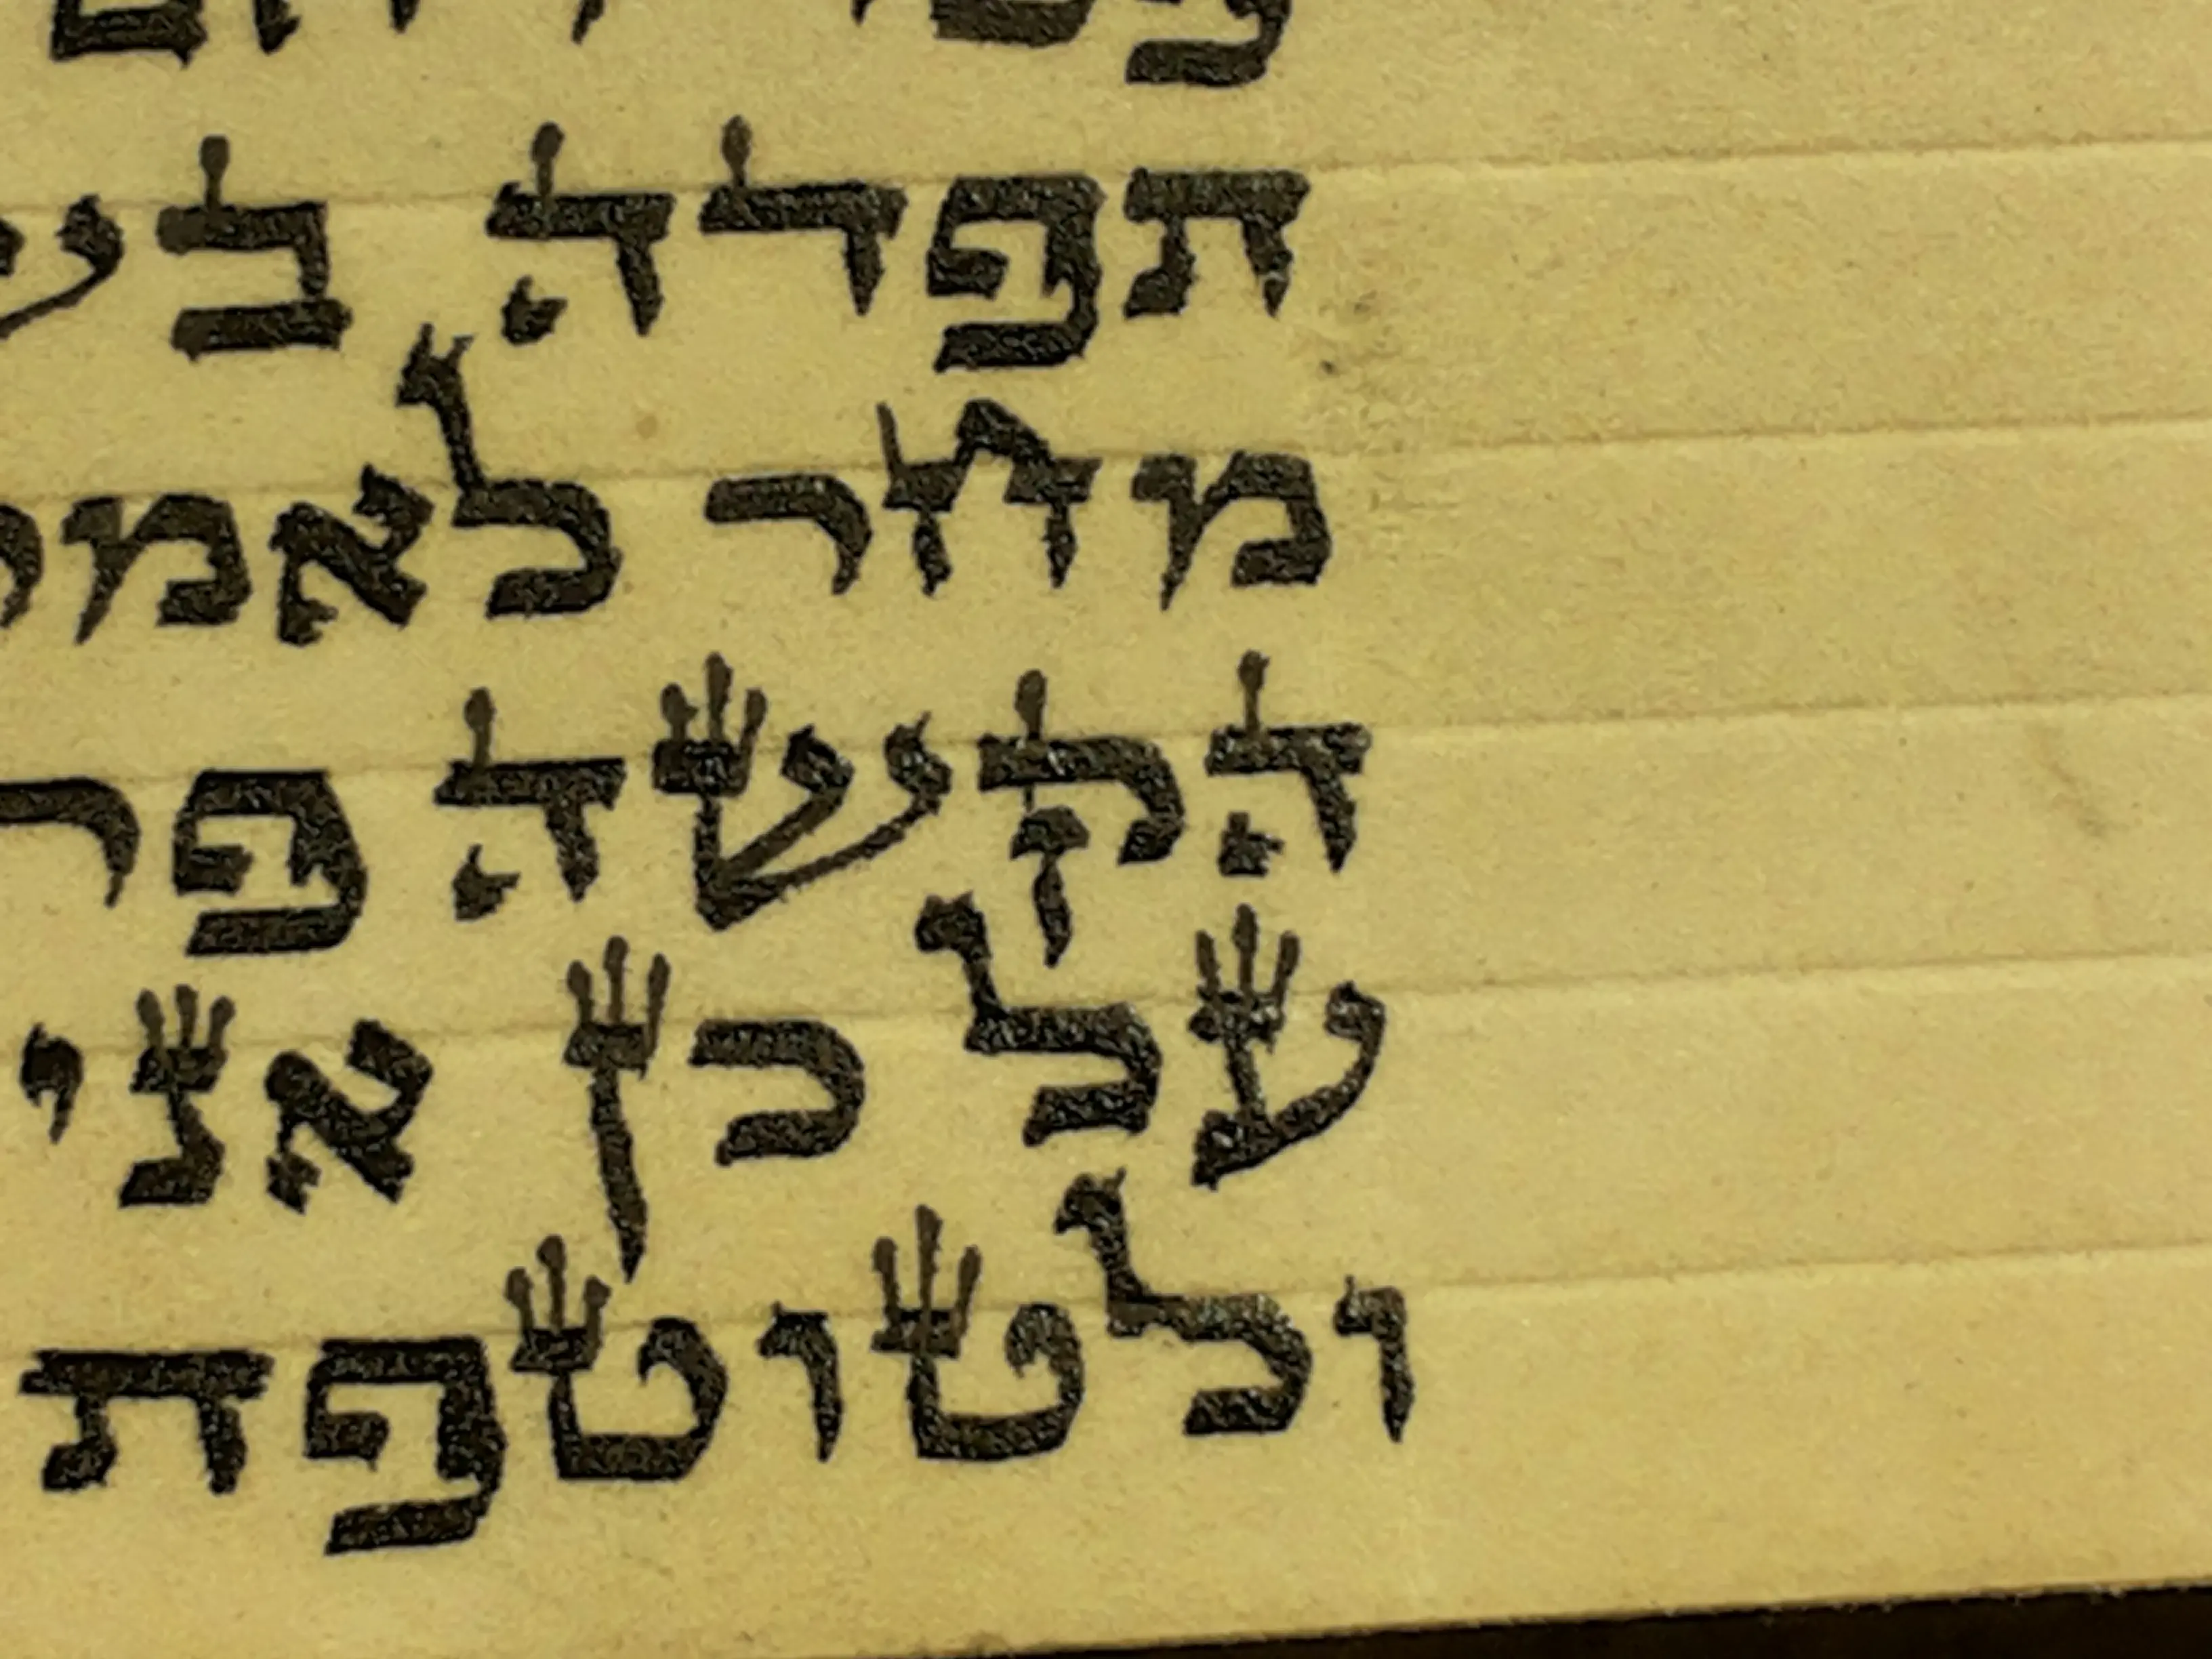 תפדה בש
מחר לאמר
הקשה פר
על כן אני
ולטוטפת